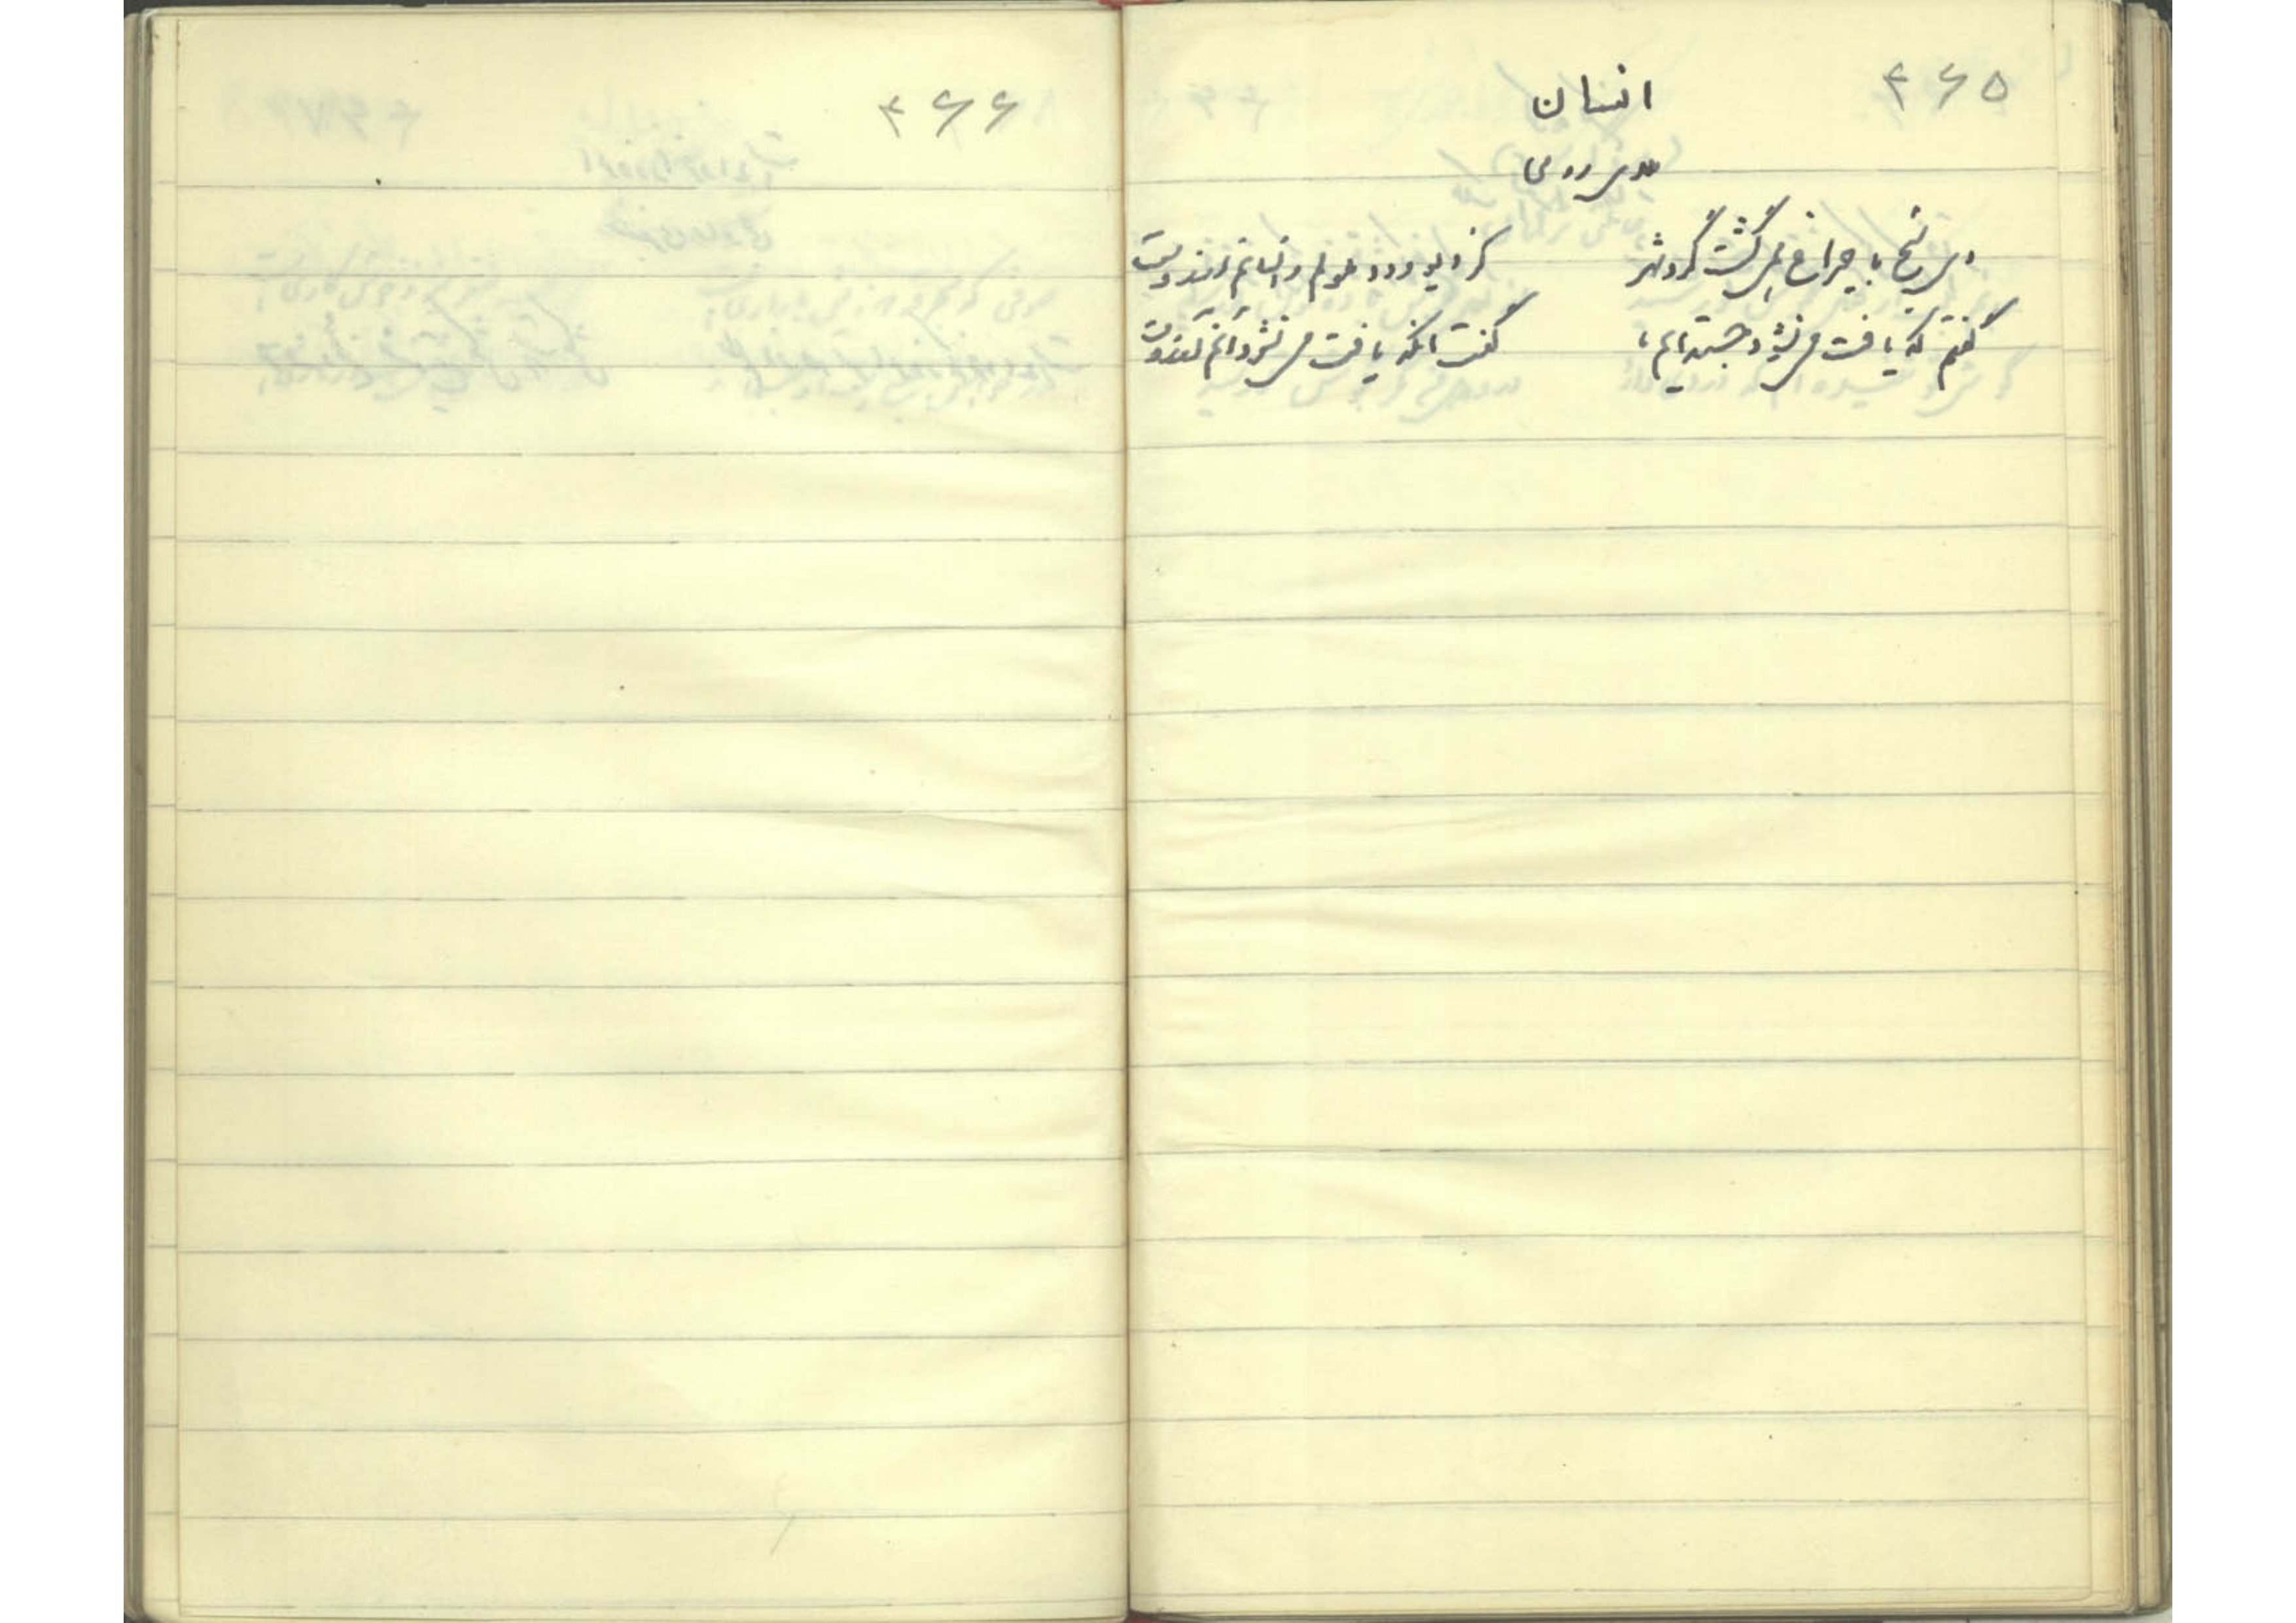 ۴۶۵
انسان
مولوی رومی
دی شیخ با چراغ همی‌گشت گرد شهر کز دیو و دد ملولم و انسانم آرزوست
گفتم که یافت می‌نشود جسته‌ایم ما گفت آنکه یافت می‌نشود آنم آرزوست
۴۶۶